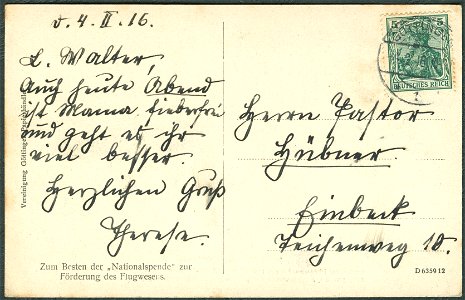 d. 4. II. 16.
L. Walter,
Auch heute Abend
ist Mama fieberfrei
und geht es ihr
viel besser.
Herzlichen Gruß
Therese.
Zum Besten der „Nationalspende" zur
Förderung des Flugwesens.
Vereinigung Götting.
5 5
DEUTSCHES REICH
Herrn Pastor
Hübner.
Einbeck
Teichenweg 10.
D 6359 12